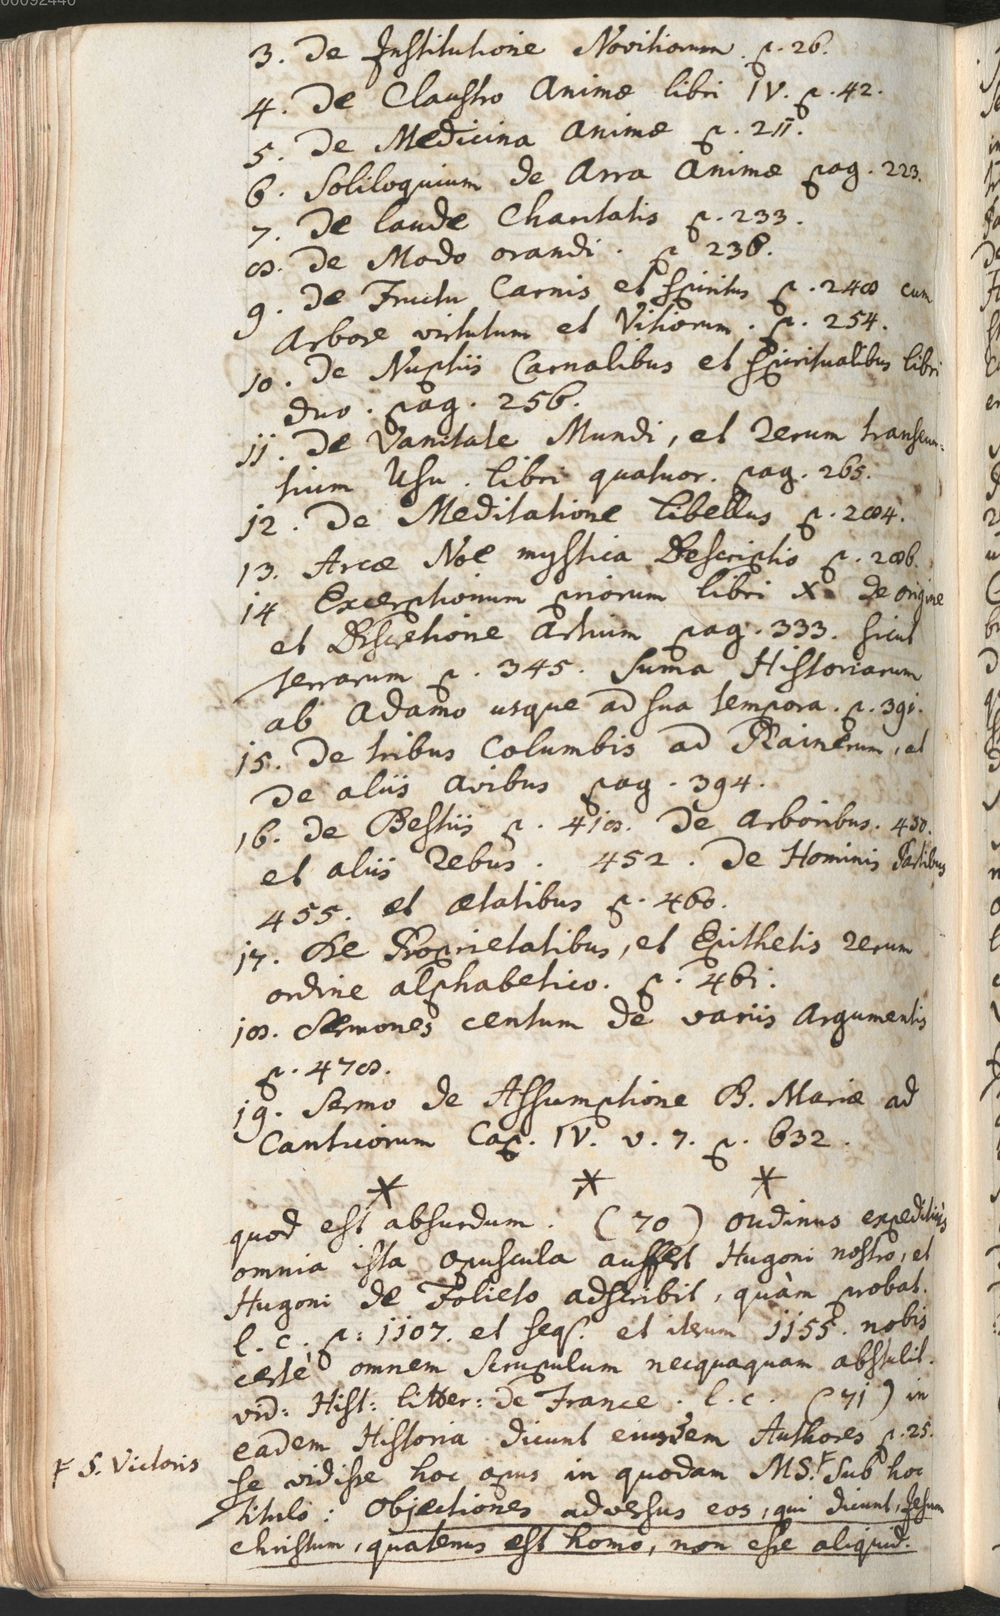 00092440
3. De Institutione Novitiorum p. 26.
4. De Claustro Animæ libri IV. p. 42.
5. De Medicina Animæ p. 211.
6. Soliloquium de Arra Animæ pag. 223.
7. De laude Charitatis p. 233.
8. De Modo orandi. p 238.
9. De Fructu Carnis et spiritus p. 248 cum
Arbore virtutum et Vitiorum. p. 254.
10. De Nuptiis Carnalibus et spiritualibus libri
duo. pag. 256.
11. De Vanitate Mundi, et rerum transeun=
tium Usu. libri quatuor. pag. 265.
12. De Meditatione libellus p. 284.
13. Arcæ Noe mystica Descriptio p. 286.
14 Excerptionum priorum libri X. de origine
et Discretione Artium pag. 333. situs
terrarum p. 345. Suma Historiarum
ab Adamo usque ad sua tempora. p. 391.
15. De tribus Columbis ad Rainerum, et
de aliis avibus pag. 394.
16. de Bestiis p. 418. De Arboribus. 450.
et aliis rebus. 452. De Hominis Partibus
455. et ætatibus p. 460.
17. De Proprietatibus, et Epithetis rerum
ordine alphabetico. p. 461.
18. Sermones centum de variis Argumentis
p. 478.
19. Sermo de Assumptione B. Mariæ ad
Canticorum Cap. IV. v. 7. p. 632.
* * *
quod est absurdum. (70) oudinus expeditius
omnia ista opuscula auffert Hugoni nostro, et
Hugoni de Folieto adscribit, quàm probat.
l. c. p: 1107. et seq. et iterum 1155. nobis
certè omnem scrupulum nequaquam abstulit.
vid: Hist: litter: de France. l. c. (71) in
eadem Historia dicunt eiusdem Authores p. 25.
F S. Victoris
se vidisse hoc opus in quodam MS. F sub hoc
titulo: Objectiones adversus eos, qui dicunt, Jesum
christum, quatenus est homo, non esse aliquid.